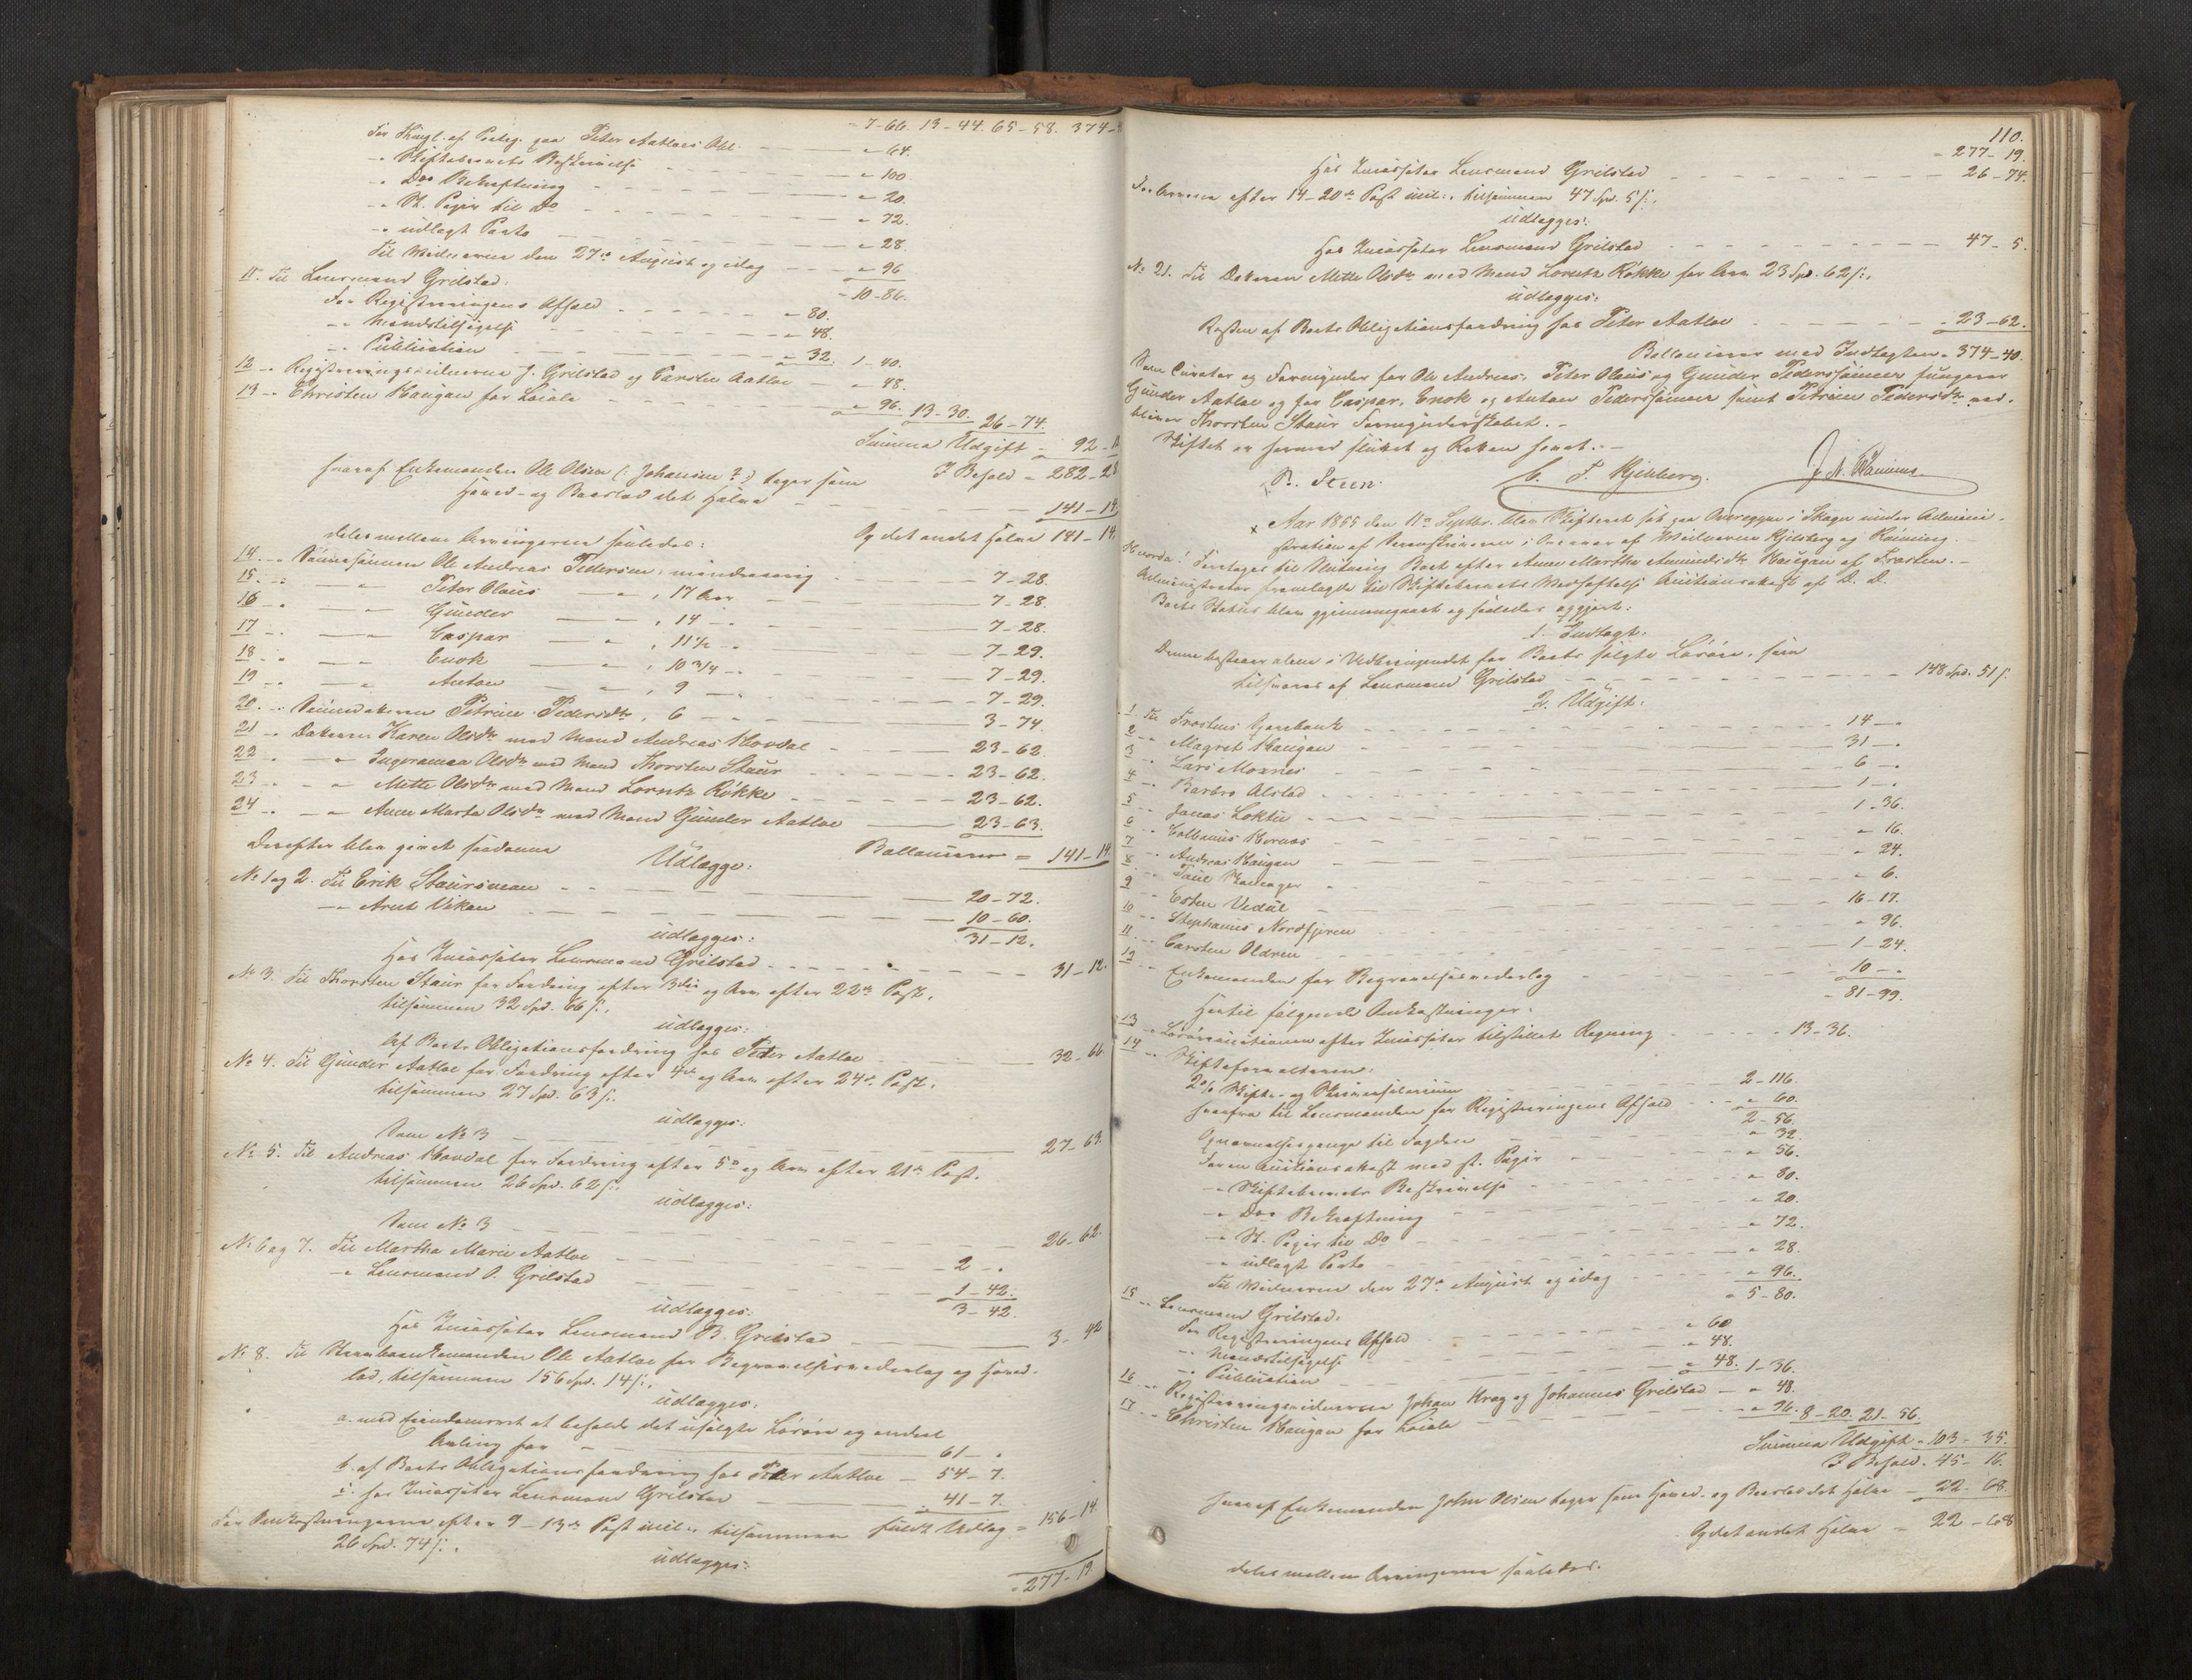 - 7-66. 13-44. 65-58. 374-
For Thingl. af Panteg. paa Peter Aatloes Obl. - 64.
-„ Skiftebrevets Beskrivelse - 100
-„ Do Bekræftning - 20.
-„ St. Papir til Do - 72.
-„ udlagt Porto - 28.
Til Vidnerne den 27de August og idag - 96
- 10-86.
11. Til Lensmand Grilstad.
For Registreringens Afhold - 80.
-„ Mændstilsigelse - 48.
-„ Publication - 32. 1-40.
12 -„ Registreringsvidnerne J. Grilstad og Carsten Aatloe - 48.
13 -„ Christen Haugan for Locale - 96. 13-30. 26-74.
Summa Udgift - 92-
I Behold - 282-28
hvoraf Enkemanden Ole Olsen (: Johansen ? :) tager som
Hoved- og Boeslod det halve 141-14.
Og det andet halve 141-14.
deles mellem Arvingerne saaledes:
14 -„ Sønnesønnen Ole Andreas Pedersen, mindreaarig 7-28.
15. -„ Peter Olaus -„- , 17 Aar 7-28.
16 -„ Gunder -„ , 14 -„ 7-28.
17 -„ Caspar -„ , 11½ -„ 7-29.
18 -„ Enok -„ , 10 3/4 -„ 7-29.
19 -„ Anton -„ , 9 -„ 7-29.
20. -„ Sønnedatteren Petrine Pedersdtr, 6 -„ 3-74.
21 -„ Datteren Karen Olsdtr med Mand Andreas Hovdal 23-62.
22 -„ Ingeranna Olsdtr med Mand Thorsten Staur 23-62.
23 -„ Mette Olsdtr med Mand Lorntz Røkke 23-62.
24 -„ Anne Marta Olsdtr med Mand Gunder Aatloe 23-63.
Ballancerer = 141-14.
Derefter blev givet saadanne Udlægge:
No 1 og 2. Til Erik Staursmoen 20-72.
-„ Arnt Viken 10-60.
31-12.
udlægges:
Hos Incassator Lensmand Grilstad 31-12.
No 3. Til Thorsten Staur for Fordring efter 3die og Arv efter 22de Post,
tilsammen 32 Spd. 66 s.,
udlægges:
Af Boets Obligationsfordring hos Peter Aatloe 32-66
No 4. Til Gunder Aatloe for Fordring efter 4de og Arv efter 24de Post,
tilsammen 27 Spd. 63 s.,
udlægges:
Som No 3 27-63.
No 5. Til Andreas Hovdal for Fordring efter 5te og Arv efter 21de Post,
tilsammen 26 Spd. 62 s.,
udlægges:
Som No 3 26-62.
No 6 og 7. Til Martha Marie Aatloe 2 -„
-„ Lensmand O. Grilstad 1-42.
3-42.
udlægges:
Hos Incassator Lensmand B. Grilstad 3-42
No 8. Til Stervboenkemanden Ole Aatloe for Begravelsesvederlag og Hoved-
lod, tilsammen 156 Spd. 14 s.,
udlægges,
a. med Eiendomsret at beholde det usolgte Løsøre og endeel
Avling for 61 -„
b. af Boets Obligationsfordring hos Peter Aatloe 54-7.
c. hos Incassator Lensmand Grilstad 41-7.
fuldt Udlæg = 156-14
For Omkostningerne efter 9-13de Post incl., tilsammen
26 Spd. 74 s.,
udlægges:
- 277-19
110.
- 277-19.
Hos Incassator Lensmand Grilstad 26-74.
For Arvene efter 14-20de Post incl., tilsammen 47 Spd. 5 s.,
udlægges:
Hos Incassator Lensmand Grilstad 47-5.
No 21. Til Datteren Mette Olsdtr med Mand Lorntz Røkke for Arv 23 Spd. 62 s.,
udlægges:
Resten af Boets Obligationsfordring hos Peter Aatloe - 23-62.
Ballancerer med Indtægten - 374-40.
Som Curator og Formynder for Ole Andreas, Peter Olaus og Gunder Pederssønner fungerer
Gunder Aatloe og for Caspar, Enok og Anton Pederssønner samt Petrine Pedersdtr ved-
bliver Thorsten Staur Formynderskabet. -
Skiftet er hermed sluttet og Retten hævet. -
R. Steen. C. F. Kjelberg. J. N. Rönning
x Aar 1855 den 11te Septbr. blev Skifteret sat paa Overeggen i Skogn under Admini-
stration af Sorenskriveren i Overvær af Vidnerne Kjelberg og Rönning. -
Hvorda: Foretages til Slutning Boet efter Anne Martha Amundsdtr Haugan af Frosten. -
Administrator fremlagde til Skiftebrevets Vedheftelse Auctionsakt af D. D.
Boets Status blev gjennemgaaet og saaledes opgjort:
1. Indtægt:
Denne bestaaer alene i Udbringendet for Boets solgte Løsøre, som
tilsvares af Lensmand Grilstad 148 Spd. 51 s.
2. Udgift:
1. Til Frostens Sparebank 14 -„
2 -„ Magret Haugan 31 -„
3 -„ Lars Moxnes 6 -„
4 -„ Barbro Alstad 1 -„
5 -„ Jonas Loktu 1-36.
6 -„ Colbanus Hernæs - 16.
7 -„ Andreas Haugan - 24.
8 -„ Paul - 6.
9 -„ Esten Vedul 16-17.
10 -„ Stephanus Nordfjeren - 96.
11 -„ Carsten Oldren 1-24.
12 -„ Enkemanden for Begravelsesvederlag 10 -„
- 81-99.
Hertil følgende Omkostninger:
13 -„ Løsøreauctionen efter Incassator tilstillet Regning 13-36.
14 -„ Skifteforvalteren:
2% Skifte- og Skriversalarium 2-116.
herfra til Lensmanden for Registreringens Afhold - 60.
2-56.
Opnævnelsespenge til Fogden - 32.
For en Auctionsakt med st. Papir - 56.
-„ Skiftebrevets Beskrivelse - 80.
-„ Do Bekræftning - 20.
-„ St. Papir til Do - 72.
-„ udlagt Porto - 28.
Til Vidnerne den 27de August og idag - 96.
- 5-80.
15 -„ Lensmand Grilstad.
For Registreringens Afhold - 60
-„ Mændstilsigelse - 48.
-„ Publication - 48. 1-36.
16 -„ Registreringsvidnerne Johan Krog og Johannes Grilstad - 48.
17 -„ Christen Haugan for Locale - 96. 8-20. 21-56.
Summa Udgift - 103-35.
I Behold - 45-16.
hvoraf Enkemanden John Olsen tager som Hoved- og Boeslod det halve - 22-68.
Og det andet halve - 22-68
deles mellem Arvingerne saaledes.